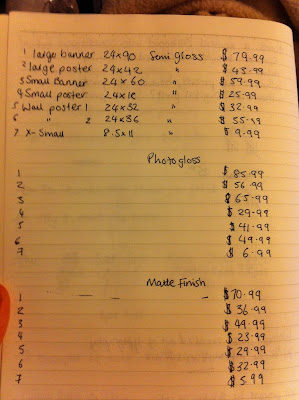 1 large banner 24x90 Semi gloss $79.99
2 large poster 24x42 " $43.99
3 Small Banner 24x60 " $59.99
4 Small poster 24x18 " $25.99
5 Wall poster 1 24x32 " $32.99
6 " 2 24x36 " $35.99
7 X-Small 8.5x11 " $9.99
Photogloss
1 $85.99
2 $56.99
3 $65.99
4 $29.99
5 $41.99
6 $49.99
7 $6.99
Matte Finish
1 $70.99
2 $36.99
3 $49.99
4 $23.99
5 $29.99
6 $32.99
7 $5.99